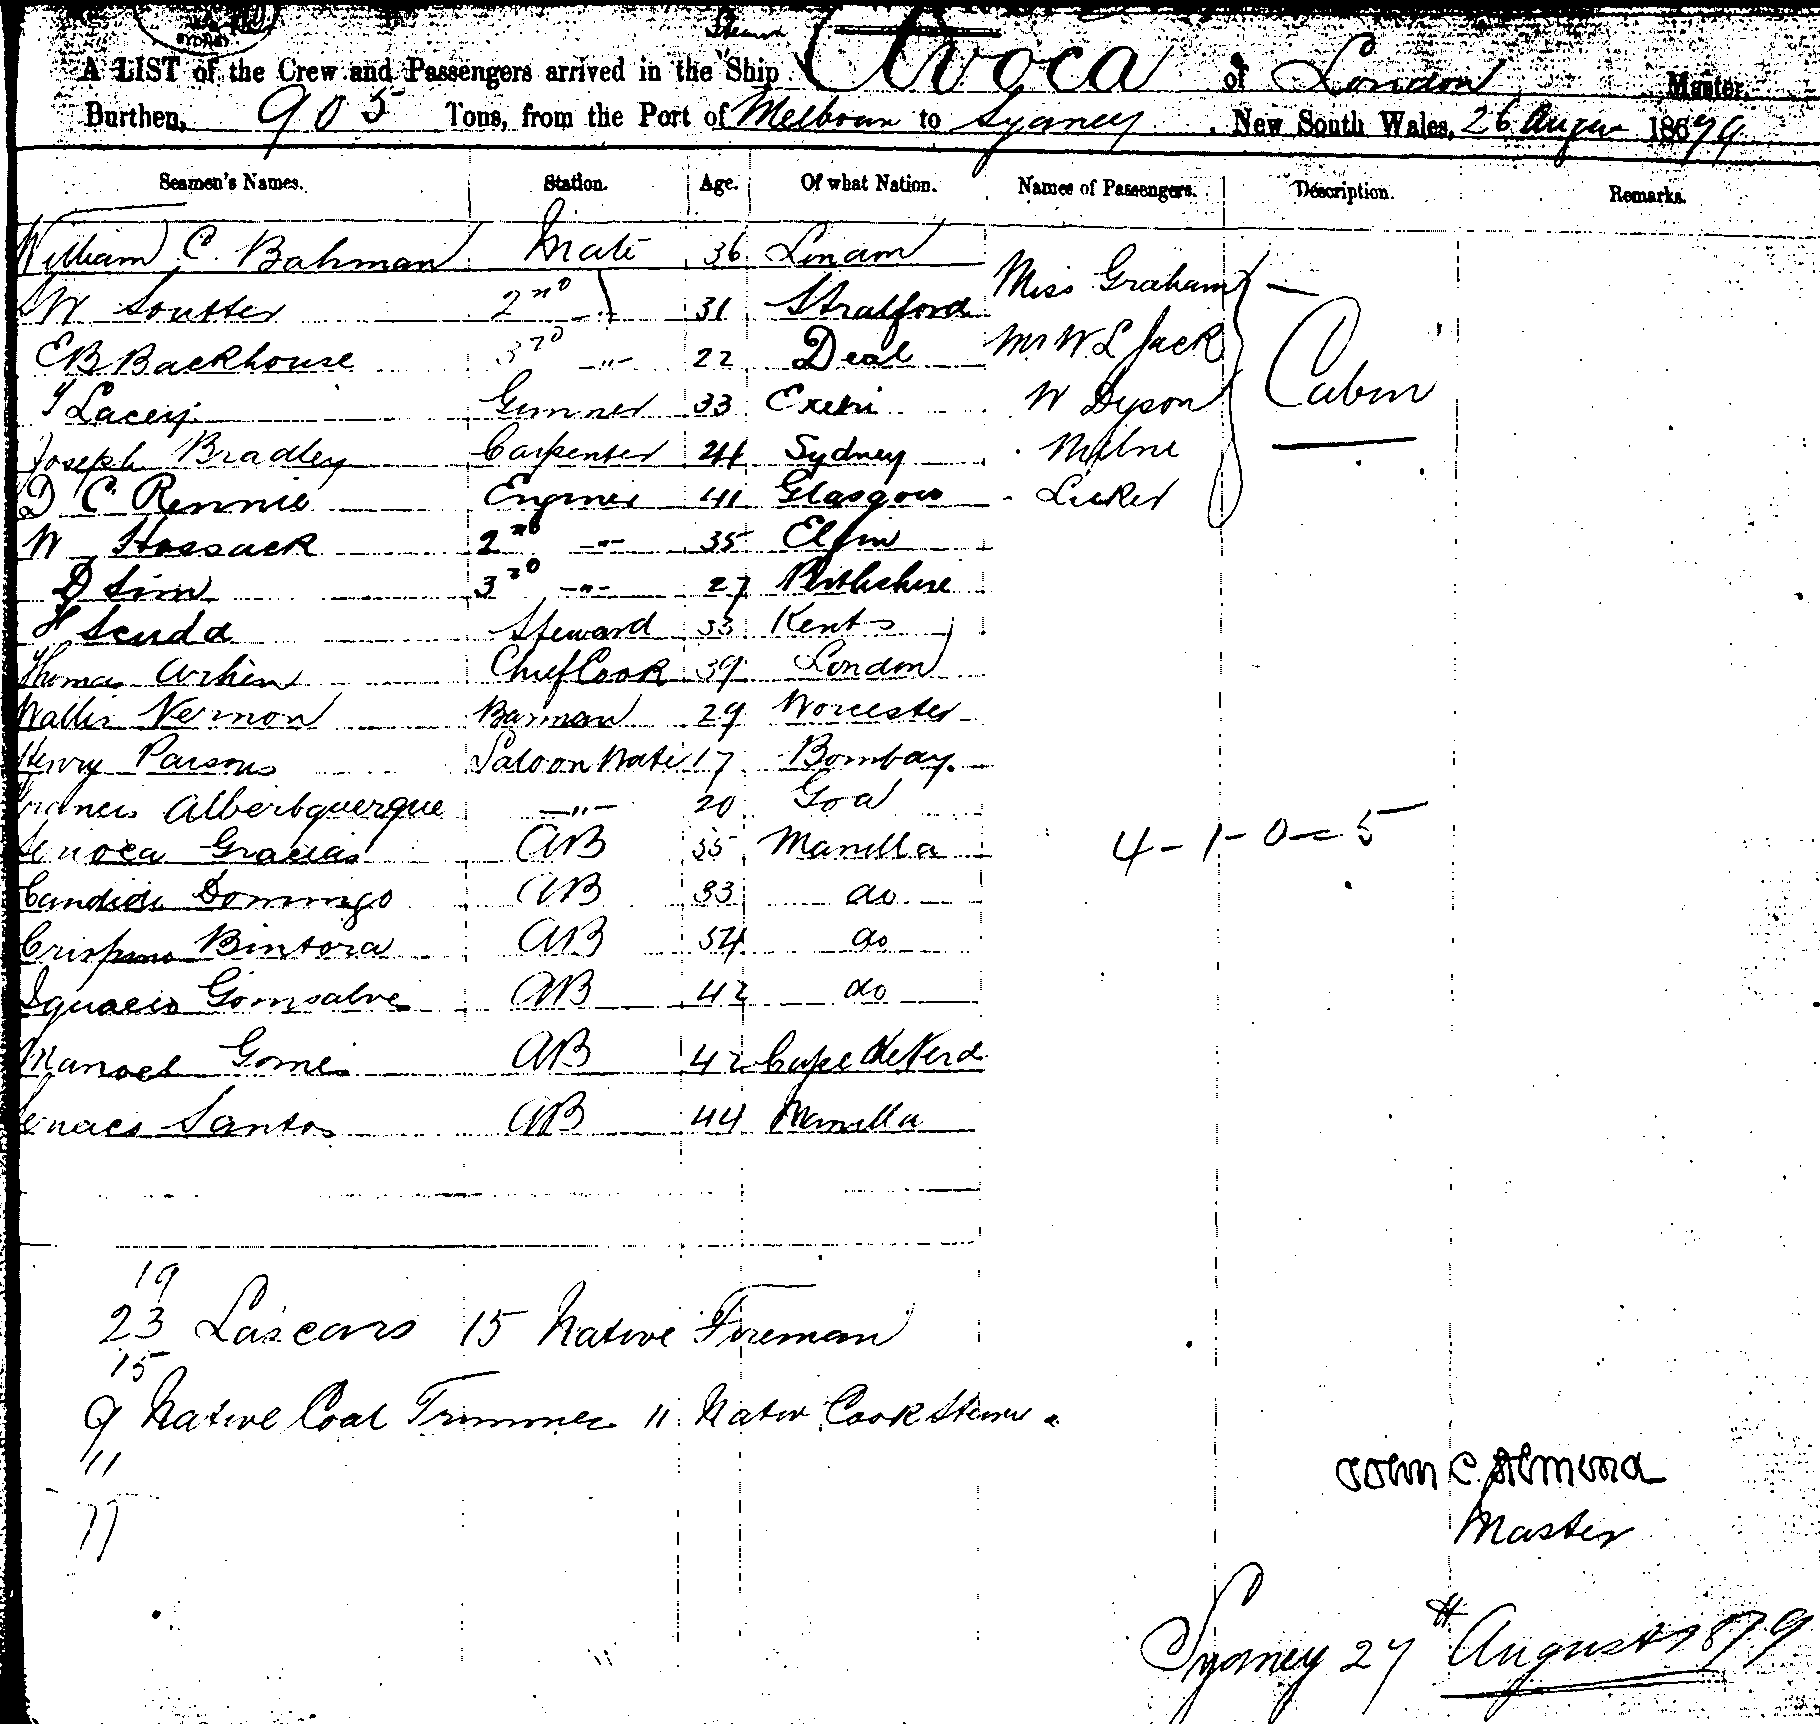 SYDNEY
Steam
A LIST of the Crew and Passengers arrived in the Ship Avoca of London Master,
Burthen, 905 Tons, from the Port of Melbourn to Sydney New South Wales, 26 August 1879
Seamen's Names. Station. Age. Of what Nation. Names of Passengers. Description. Remarks.
William C. Bahman Mate 36
W Soutter 2nd 31 Stratford
E B Backhouse 3rd " 22 Deal
T Lacey Gunner 33
Joseph Bradley Carpenter 24 Sydney
D C Rennie Engineer 41 Glasgow
W Hossack 2nd " 35 Elgin
D Sim 3rd " 27 Perthshire
H Scudd Steward 33 Kent
Thomas Chief Cook 39 London
Walter Vernon Barman 29 Worcester
Henry Parsons Saloon Waiter 17 Bombay
Francis Alberbquerque " 20 Goa
Gracias AB 35 Manilla
Candido Domingo AB 33 do
Crispino Bintora AB 34 do
Ignacio Gomsalve AB 42 do
Manoel Gomes AB 42 Cape de Verd
Santos AB 44 Manilla
Miss Graham
Mr W L Jack
W Dyson
Milne
Cabin
4 - 1 - 0 = 5
19
23 Lascars 15 Native Fireman
15
9 Native Coal Trimmer 11 Native Cook
11
77
John C. Almond
Master
Sydney 27th August 1879